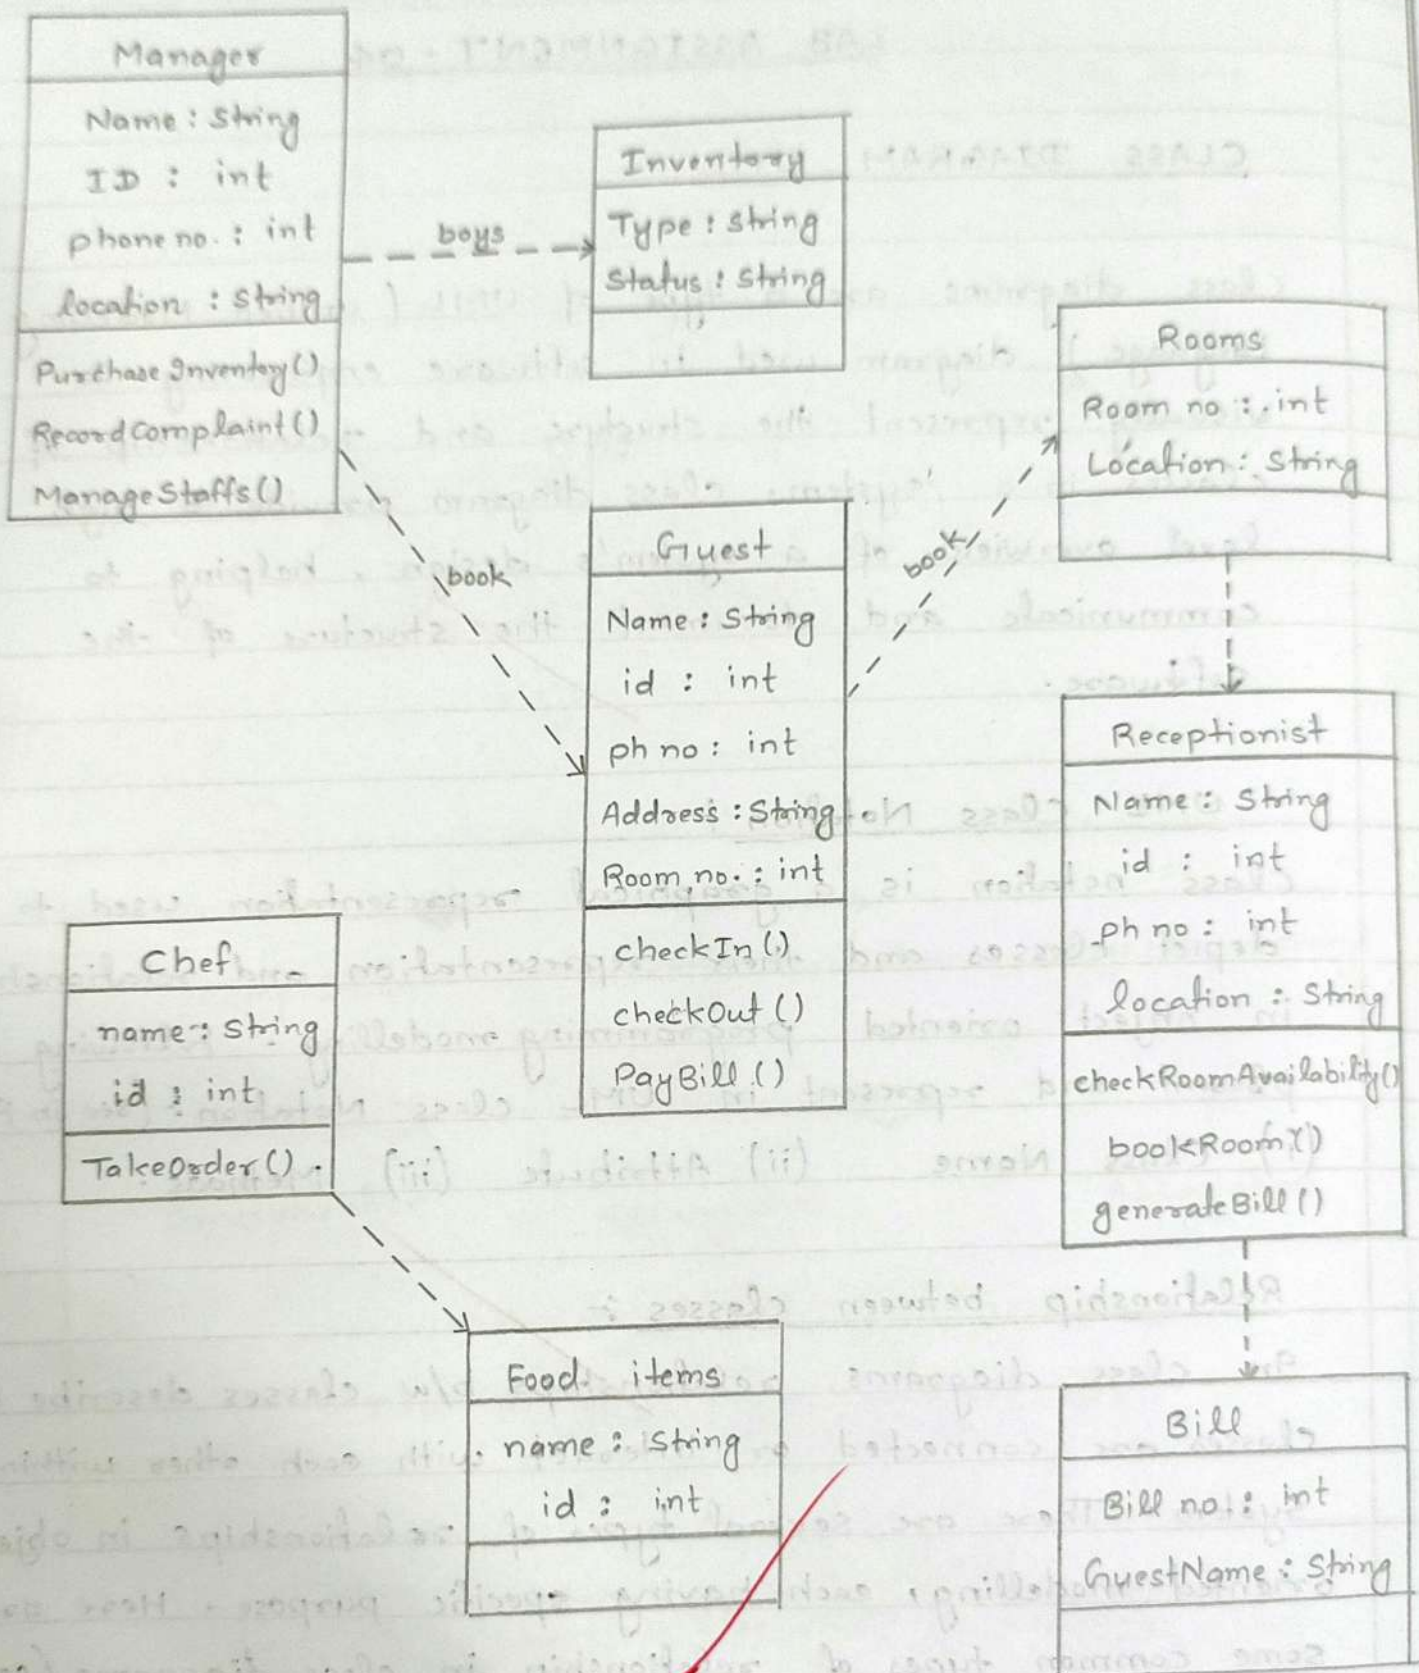 Manager
Name : String
ID : int
phone no. : int
location : String
Purchase Inventory()
RecordComplaint()
ManageStaffs()
boys
Inventory
Type : String
Status : String
book
Guest
Name : String
id : int
ph no : int
Address : String
Room no. : int
checkIn()
checkOut()
PayBill()
book
Rooms
Room no : int
Location : String
Receptionist
Name : String
id : int
ph no : int
location : String
checkRoomAvailability()
bookRoom()
generateBill()
Chef
name : String
id : int
TakeOrder()
Food items
name : String
id : int
Bill
Bill no. : int
GuestName : String